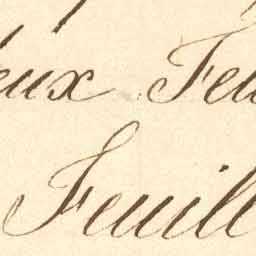 eux Feu
Feuill